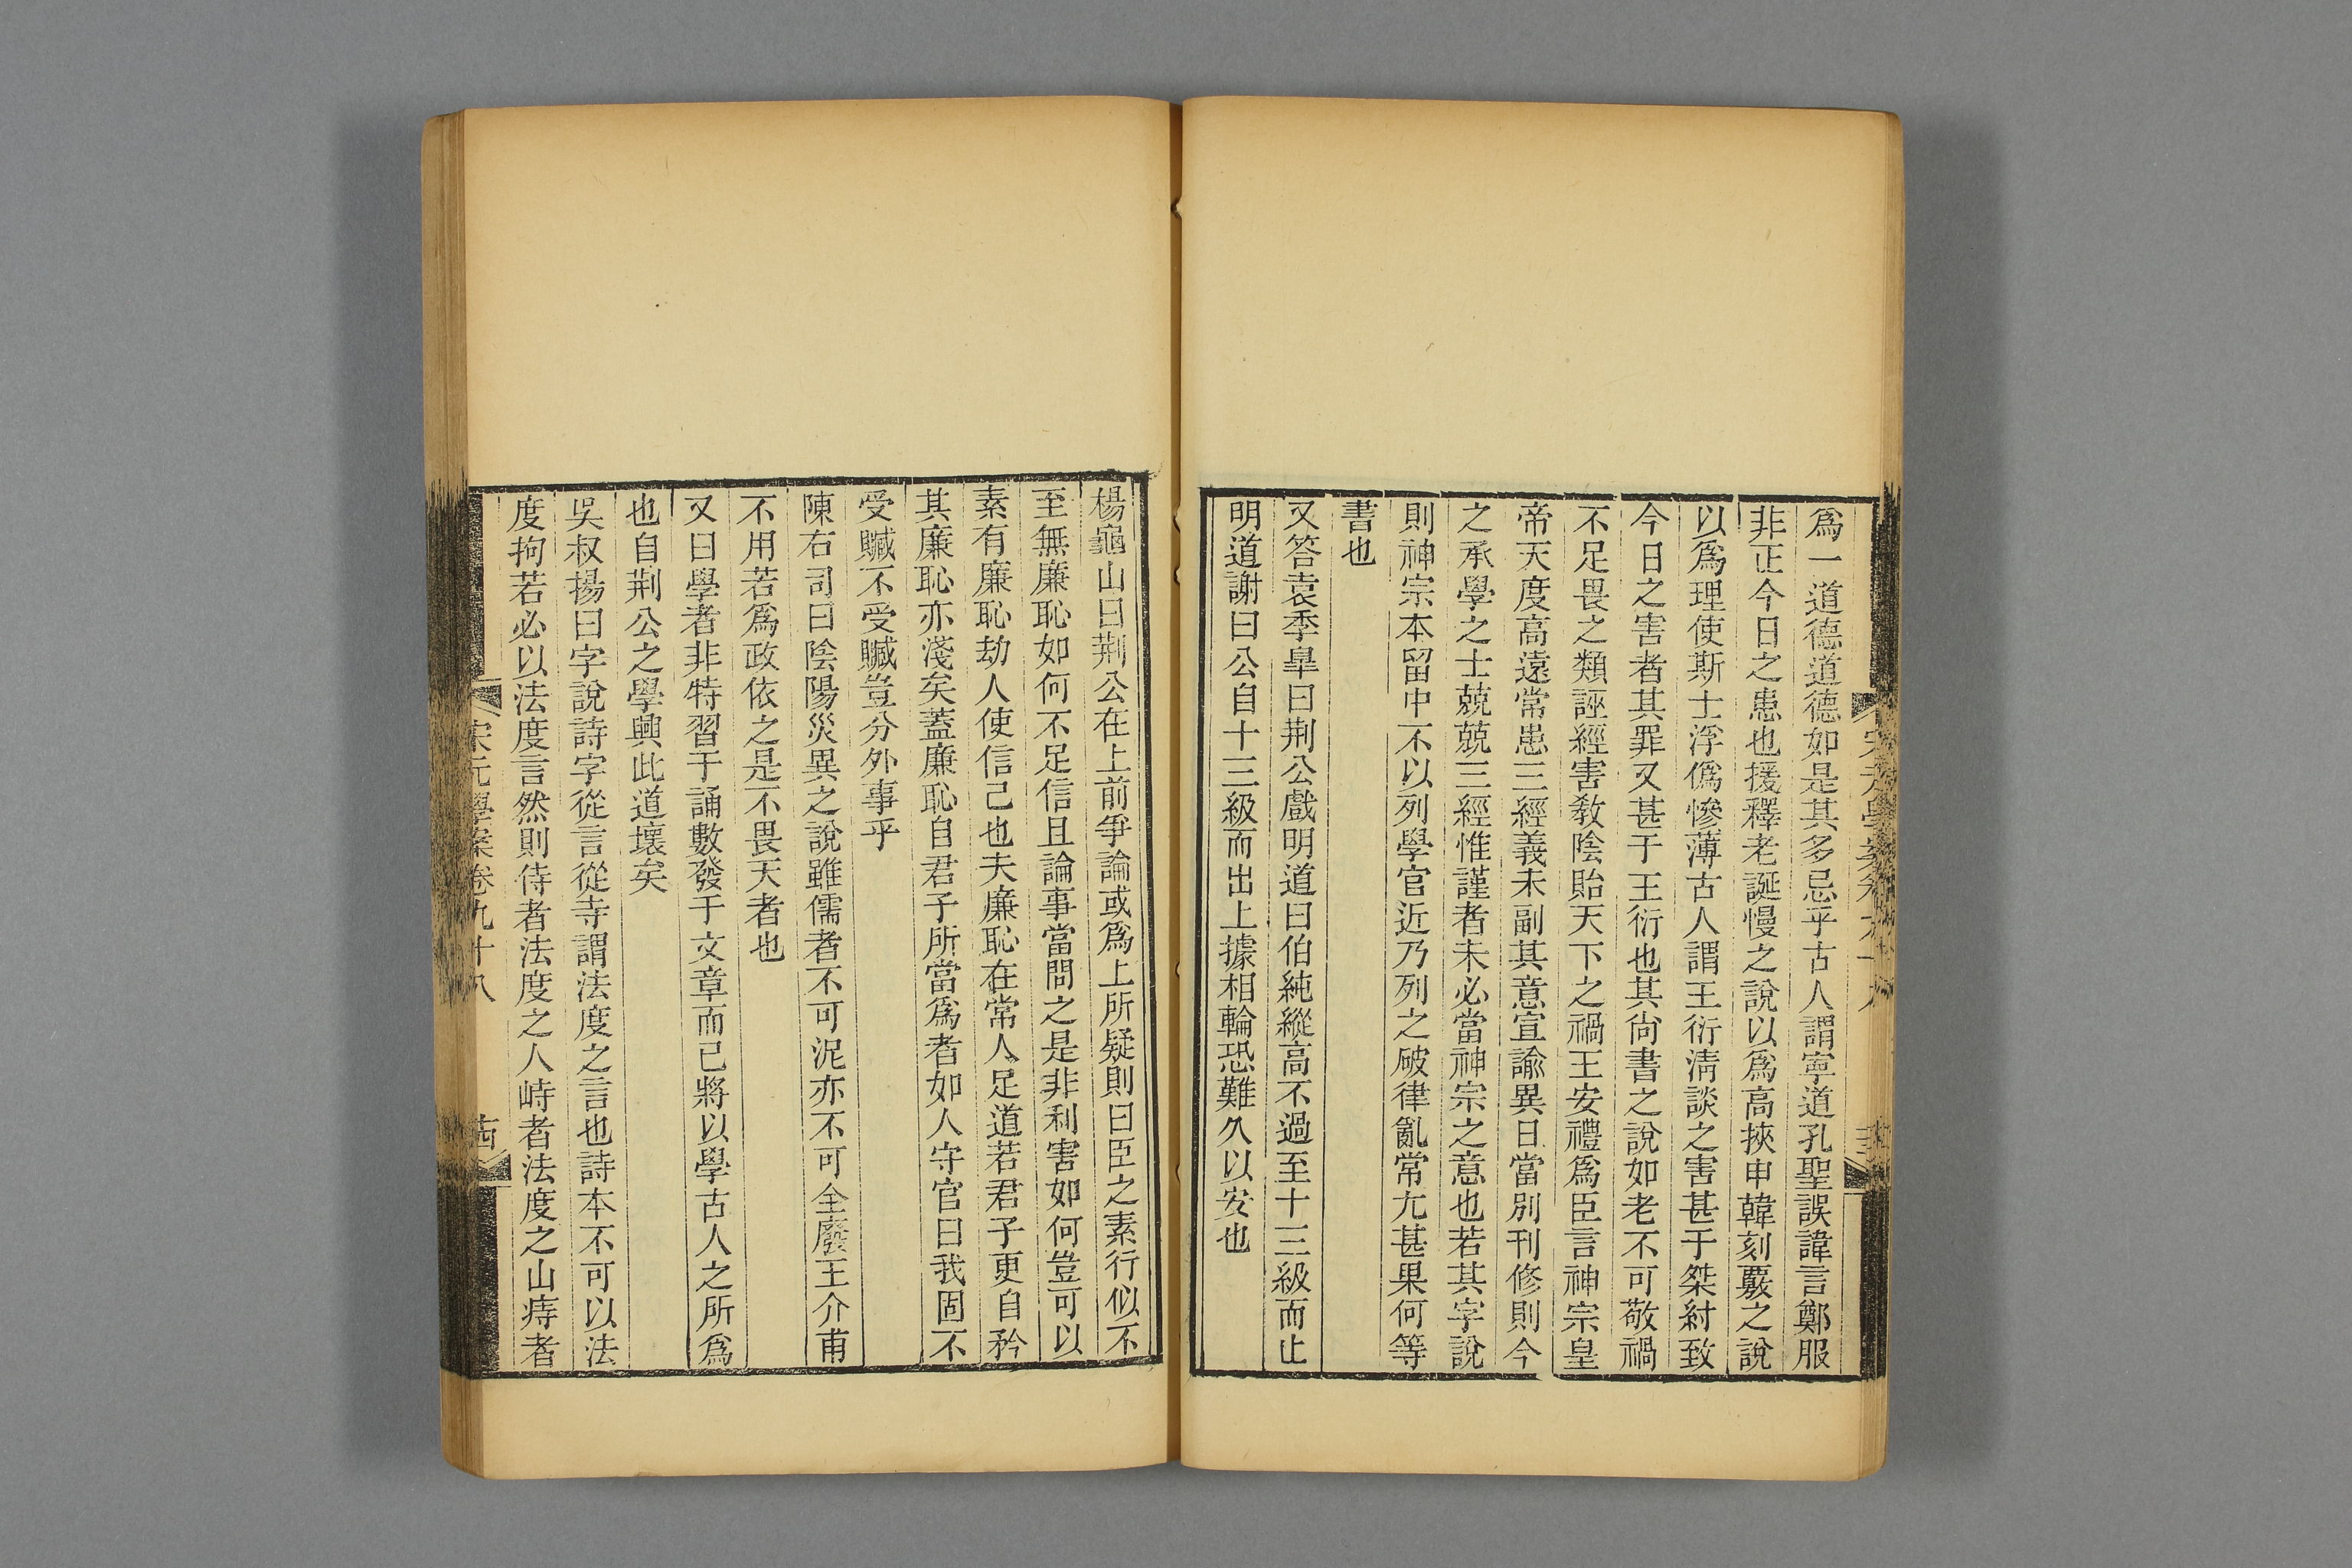 爲一道德道德如是其多忌乎古人謂寧道孔聖誤諱言鄭服
非正今日之患也援釋老誕慢之說以爲高挾申韓刻覈之說
以爲理使斯士浮僞慘薄古人謂王衍淸談之害甚于桀紂致
今日之害者其罪又甚于王衍也其尙書之說如老不可敬禍
不足畏之類誣經害敎陰貽天下之禍王安禮爲臣言神宗皇
帝天度高遠常患三經義未副其意宣諭異日當別刊修則今
之承學之士兢兢三經惟謹者未必當神宗之意也若其字說
則神宗本留中不以列學官近乃列之破律亂常尤甚果何等
書也
又答袁季皐曰荆公戲明道曰伯純縱高不過至十三級而止
明道謝曰公自十三級而出上據相輪恐難久以安也
楊龜山曰荆公在上前爭論或爲上所疑則曰臣之素行似不
至無廉恥如何不足信且論事當問之是非利害如何豈可以
素有廉恥劫人使信己也夫廉恥在常人足道若君子更自矜
其廉恥亦淺矣蓋廉恥自君子所當爲者如人守官曰我固不
受贓不受贓豈分外事乎
陳右司曰陰陽災異之說雖儒者不可泥亦不可全廢王介甫
不用若爲政依之是不畏天者也
又曰學者非特習于誦數發于文章而已將以學古人之所爲
也自荆公之學興此道壞矣
吳叔揚曰字說詩字從言從寺謂法度之言也詩本不可以法
度拘若必以法度言然則侍者法度之人峙者法度之山痔者
宋元學案卷九十八